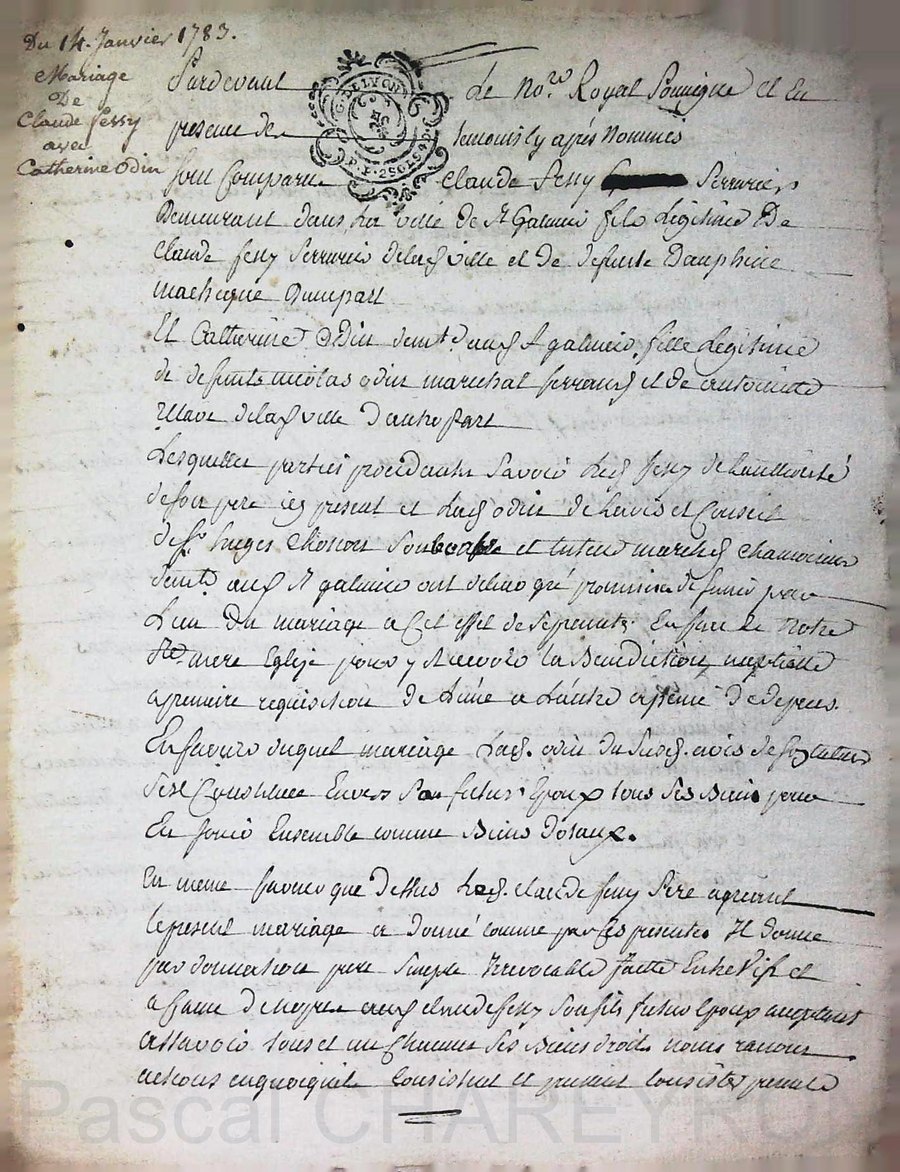 Du 14. Janvier 1783.
Mariage
De
Claude fessy
avec
Catherine Odin
G. DE LYON
P. P. 2 SOLS 4 D.
Pardevant Le no.re Royal Soussigné et En
presence des temoins Cy après Nommés
Sont Comparus Claude fessy Serrurier
Demeurant dans La ville de St Galmier fils Legitime De
Claude fessy Serrurier de lad ville et de defunte Dauphine
Dunepart
Et Catherine Odin demt. aud St galmier, fille Legitime
de defunt nicolas odin marechal ferrand et de antoinette
de lad ville D'autre part
Lesquelles parties procedantes Savoir Led fessy de L'authorité
de son pere icy present et Lad odin de Lavis et Conseil
de Sr. et tuteur marchd
demt. aud St galmier ont de leur gré promis de s'unir par
Lien Du mariage a Cet effet de se presenter En face de Notre
Ste mere Eglise pour y Recevoir la Benediction nuptiale
a premiere requisition de Lune a Lautre a peine De depens.
En faveur duquel mariage Lad. odin de Susd. avis
S'est Constituée Envers Son futur Epoux tous Ses Biens pour
En jouir Ensemble comme Biens dotaux.
En meme faveur que Dessus Led. Claude fessy Pere agréant
le present mariage a Donné comme par Ces presentes Il donne
par donnation pure Simple Irrevocable faitte Entre Vifs et
a Cause de noces aud Claude fessy Son fils futur Epoux acceptant
assavoir tous et un Chacuns Ses Biens droits noms raisons
actions en quoy quils Consistent et puissent Consister
Pascal CHAREYRON